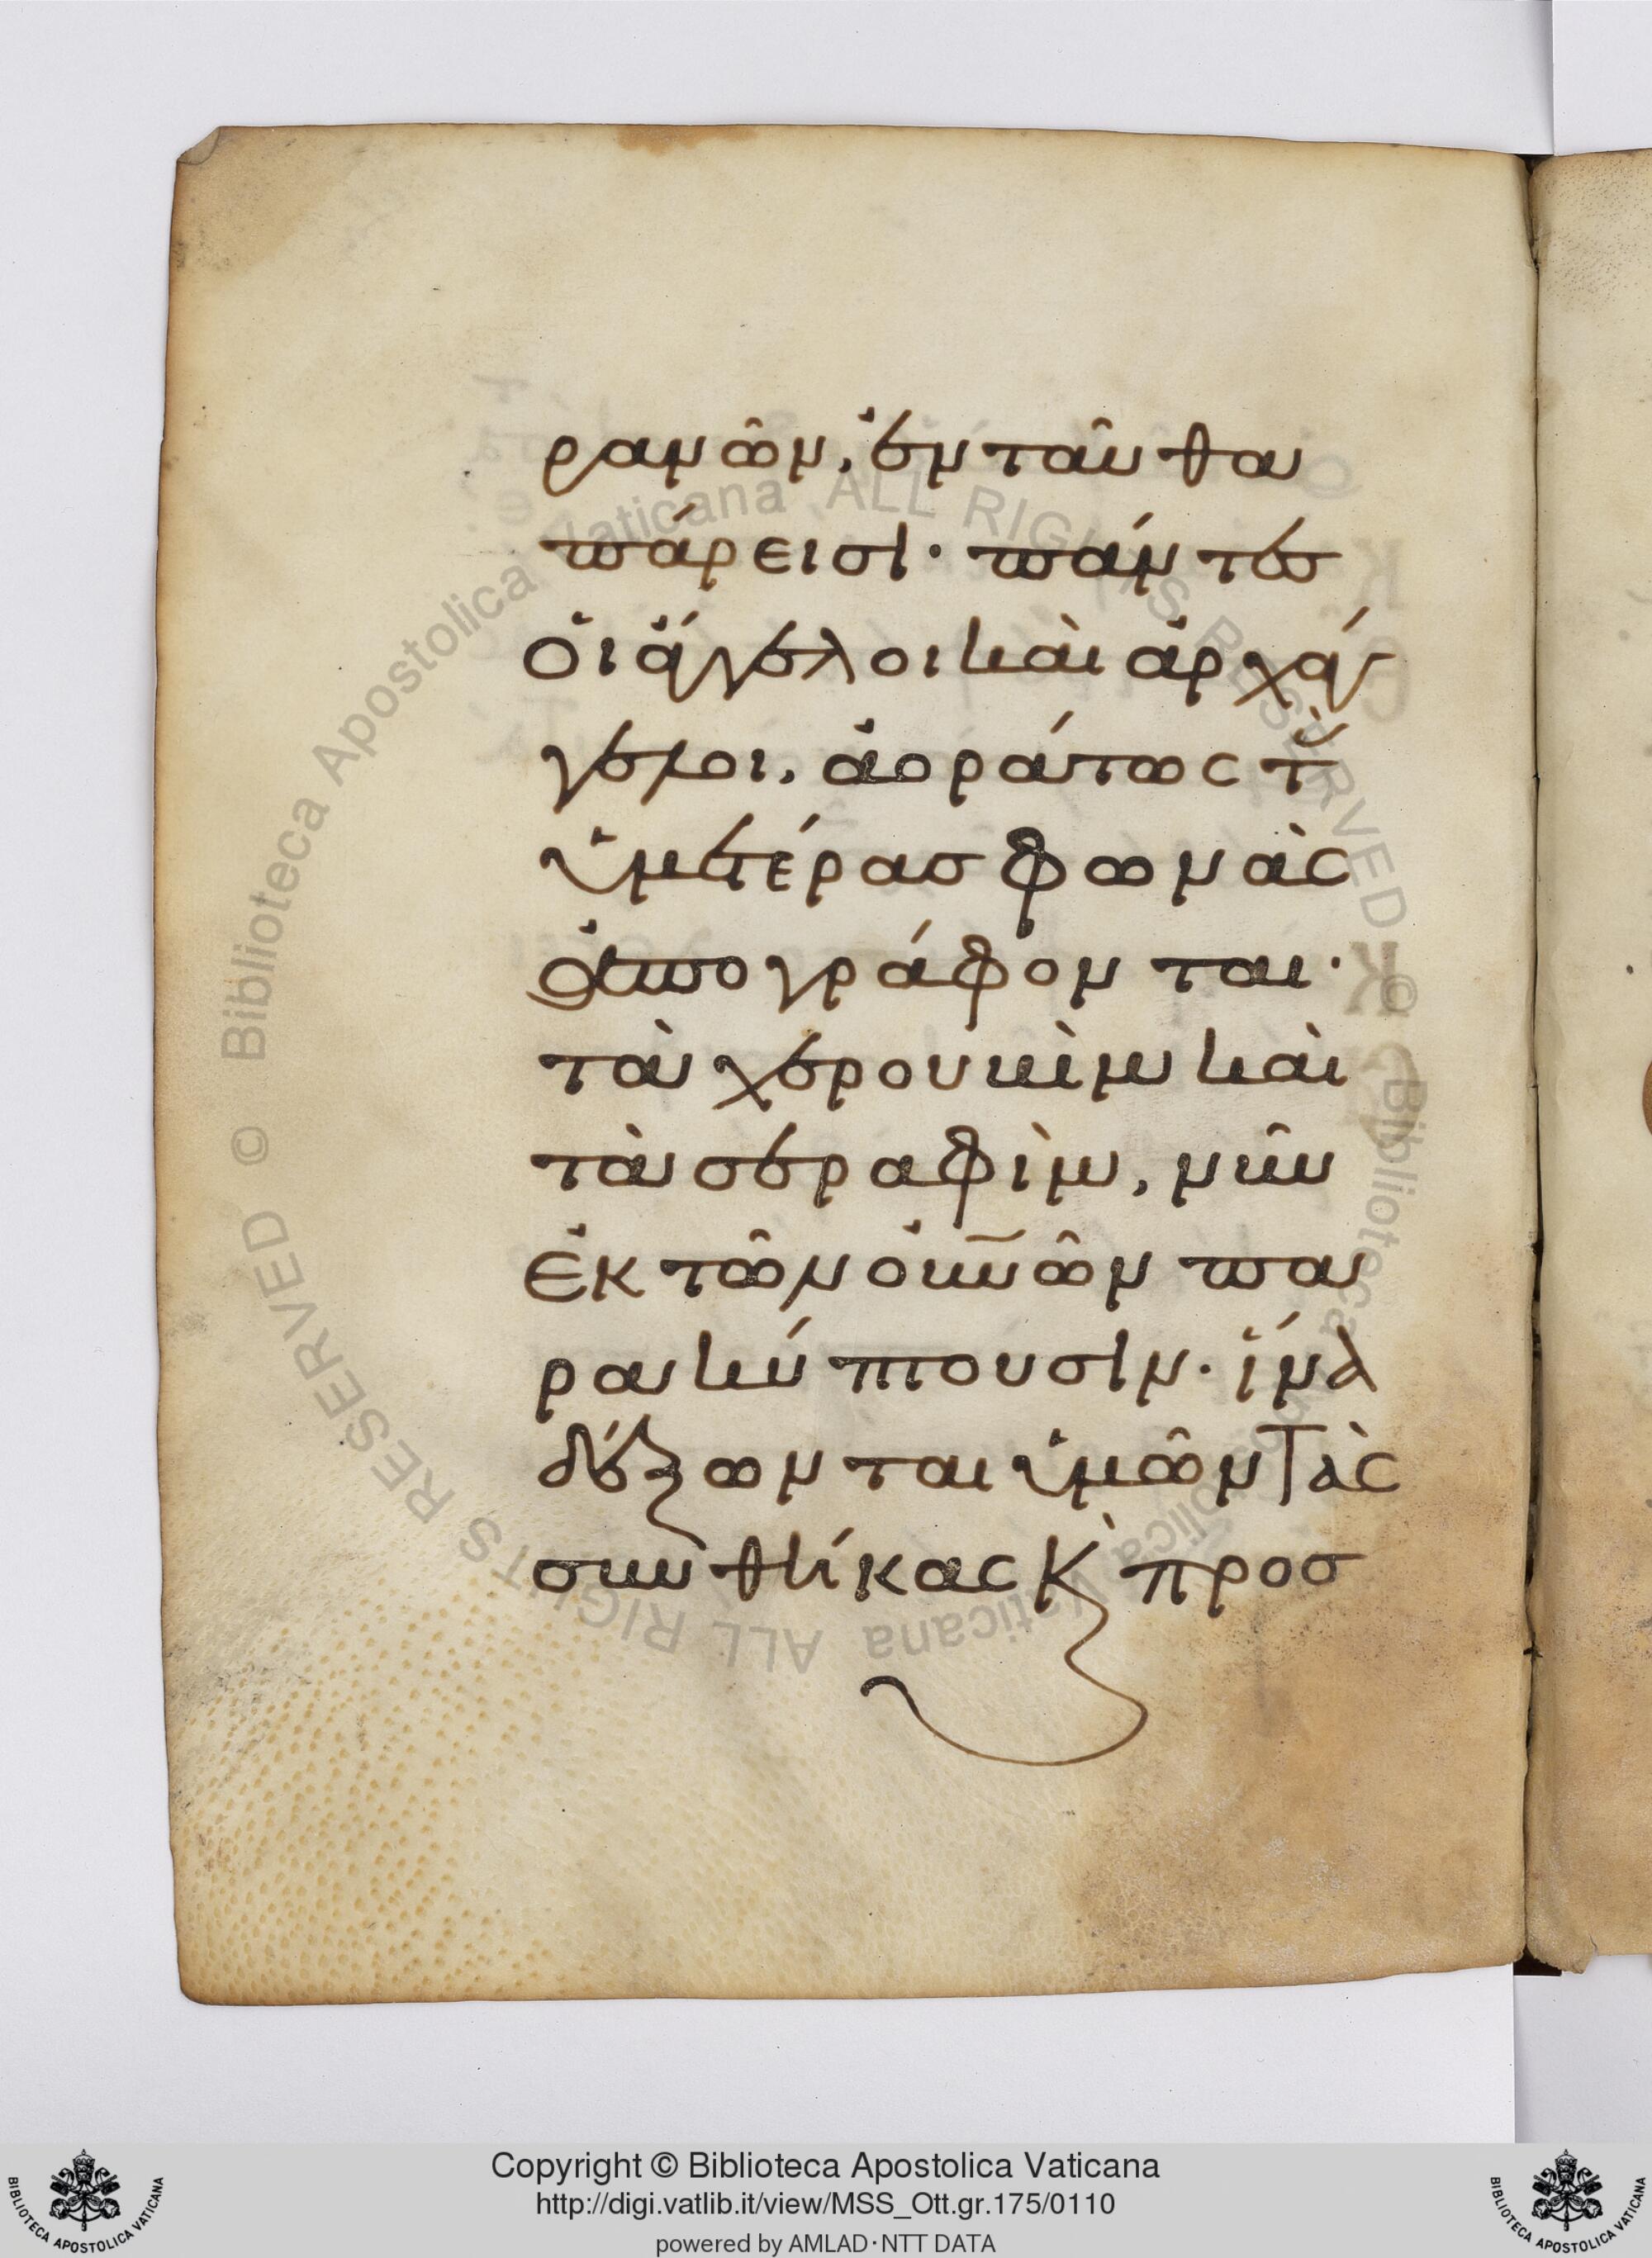 ρανῶν, ἐνταῦθα
πάρεισι· πάντες
οἱ ἄγγελοι καὶ ἀρχάγ
γελοι, ἀοράτως τ(ὰς)
ὑμετέρας φωνὰς
ἀπογράφονται·
τὰ χερουβὶμ καὶ
τὰ σεραφὶμ, νῦν
ἐκ τῶν οὐ̅νῶν πα
ρακύπτουσιν· ἵνα
δέξωνται ὑμῶν τὰς
συνθήκας κ(αὶ) προσ
Copyright © Biblioteca Apostolica Vaticana
http://digi.vatlib.it/view/MSS_Ott.gr.175/0110
powered by AMLAD·NTT DATA
BIBLIOTECA APOSTOLICA VATICANA
BIBLIOTECA APOSTOLICA VATICANA
© Biblioteca Apostolica Vaticana ALL RIGHTS RESERVED
© Biblioteca Apostolica Vaticana ALL RIGHTS RESERVED